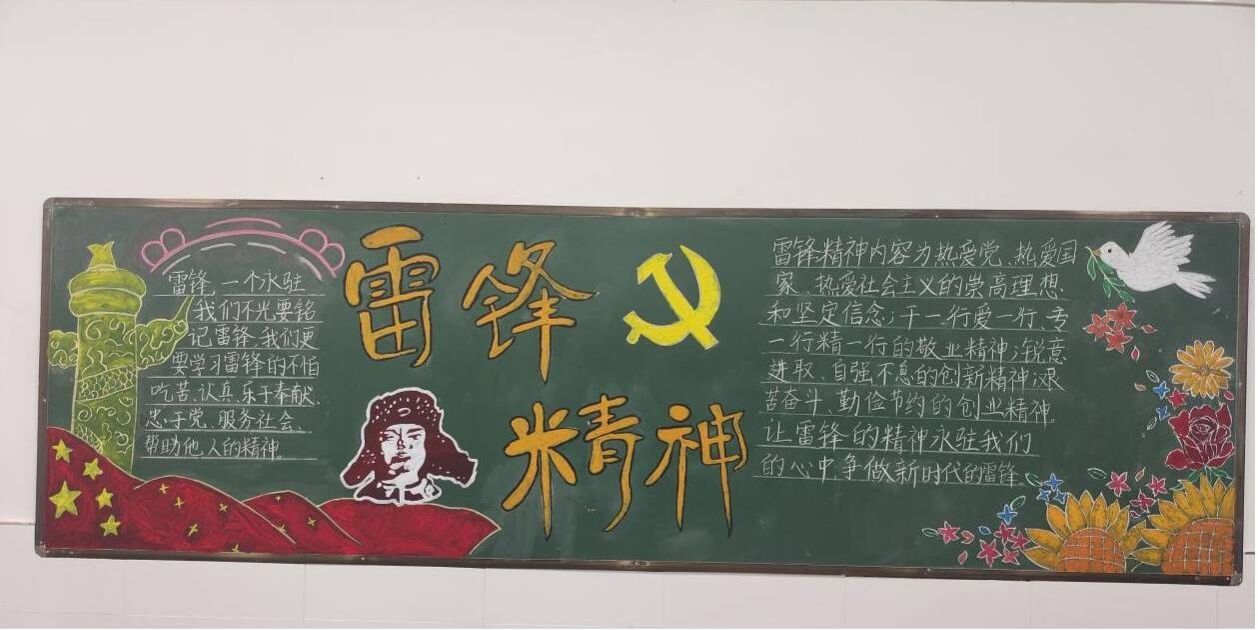 雷锋,一个永驻
我们不光要铭
记雷锋,我们更
要学习雷锋的不怕
吃苦、认真、乐于奉献、
忠于党、服务社会、
帮助他人的精神。
雷锋
精神
雷锋精神内容为热爱党、热爱国
家、热爱社会主义的崇高理想
和坚定信念;干一行爱一行、专
一行精一行的敬业精神;锐意
进取、自强不息的创新精神;艰
苦奋斗、勤俭节约的创业精神。
让雷锋的精神永驻我们
的心中,争做新时代的雷锋。